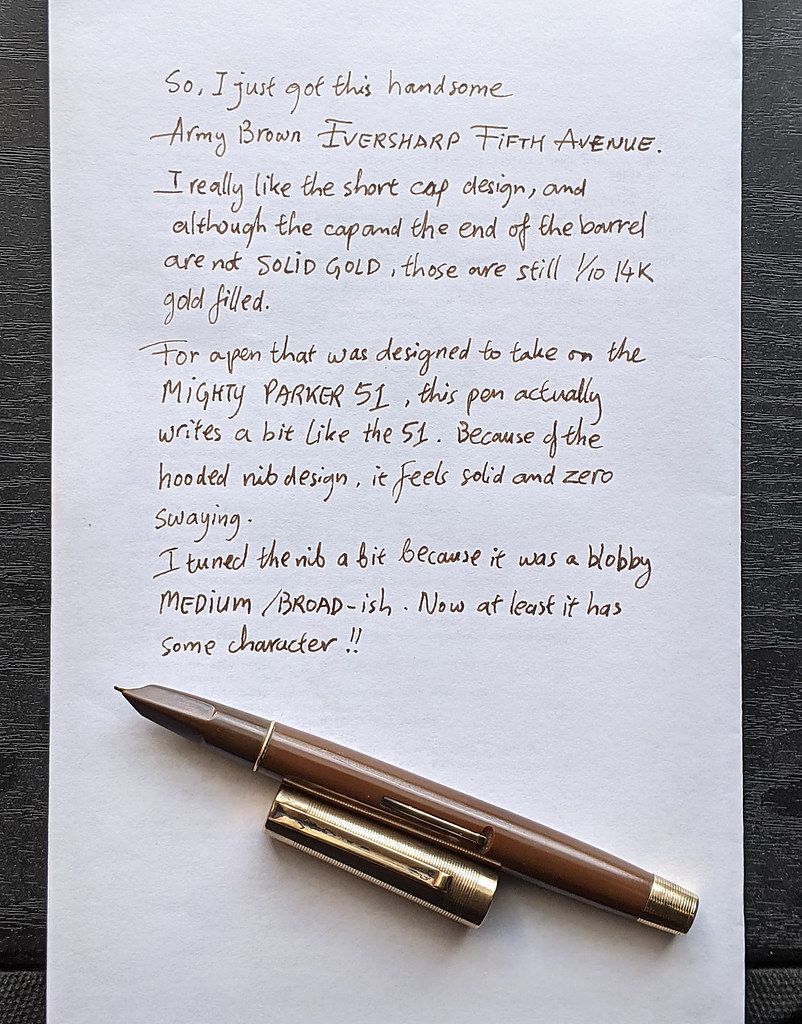 So, I just got this handsome
Army Brown EVERSHARP FIFTH AVENUE.
I really like the short cap design, and
although the cap and the end of the barrel
are not SOLID GOLD, those are still 1/10 14K
gold filled.
For a pen that was designed to take on the
MIGHTY PARKER 51, this pen actually
writes a bit like the 51. Because of the
hooded nib design, it feels solid and zero
swaying.
I tuned the nib a bit because it was a blobby
MEDIUM/BROAD-ish. Now at least it has
some character!!